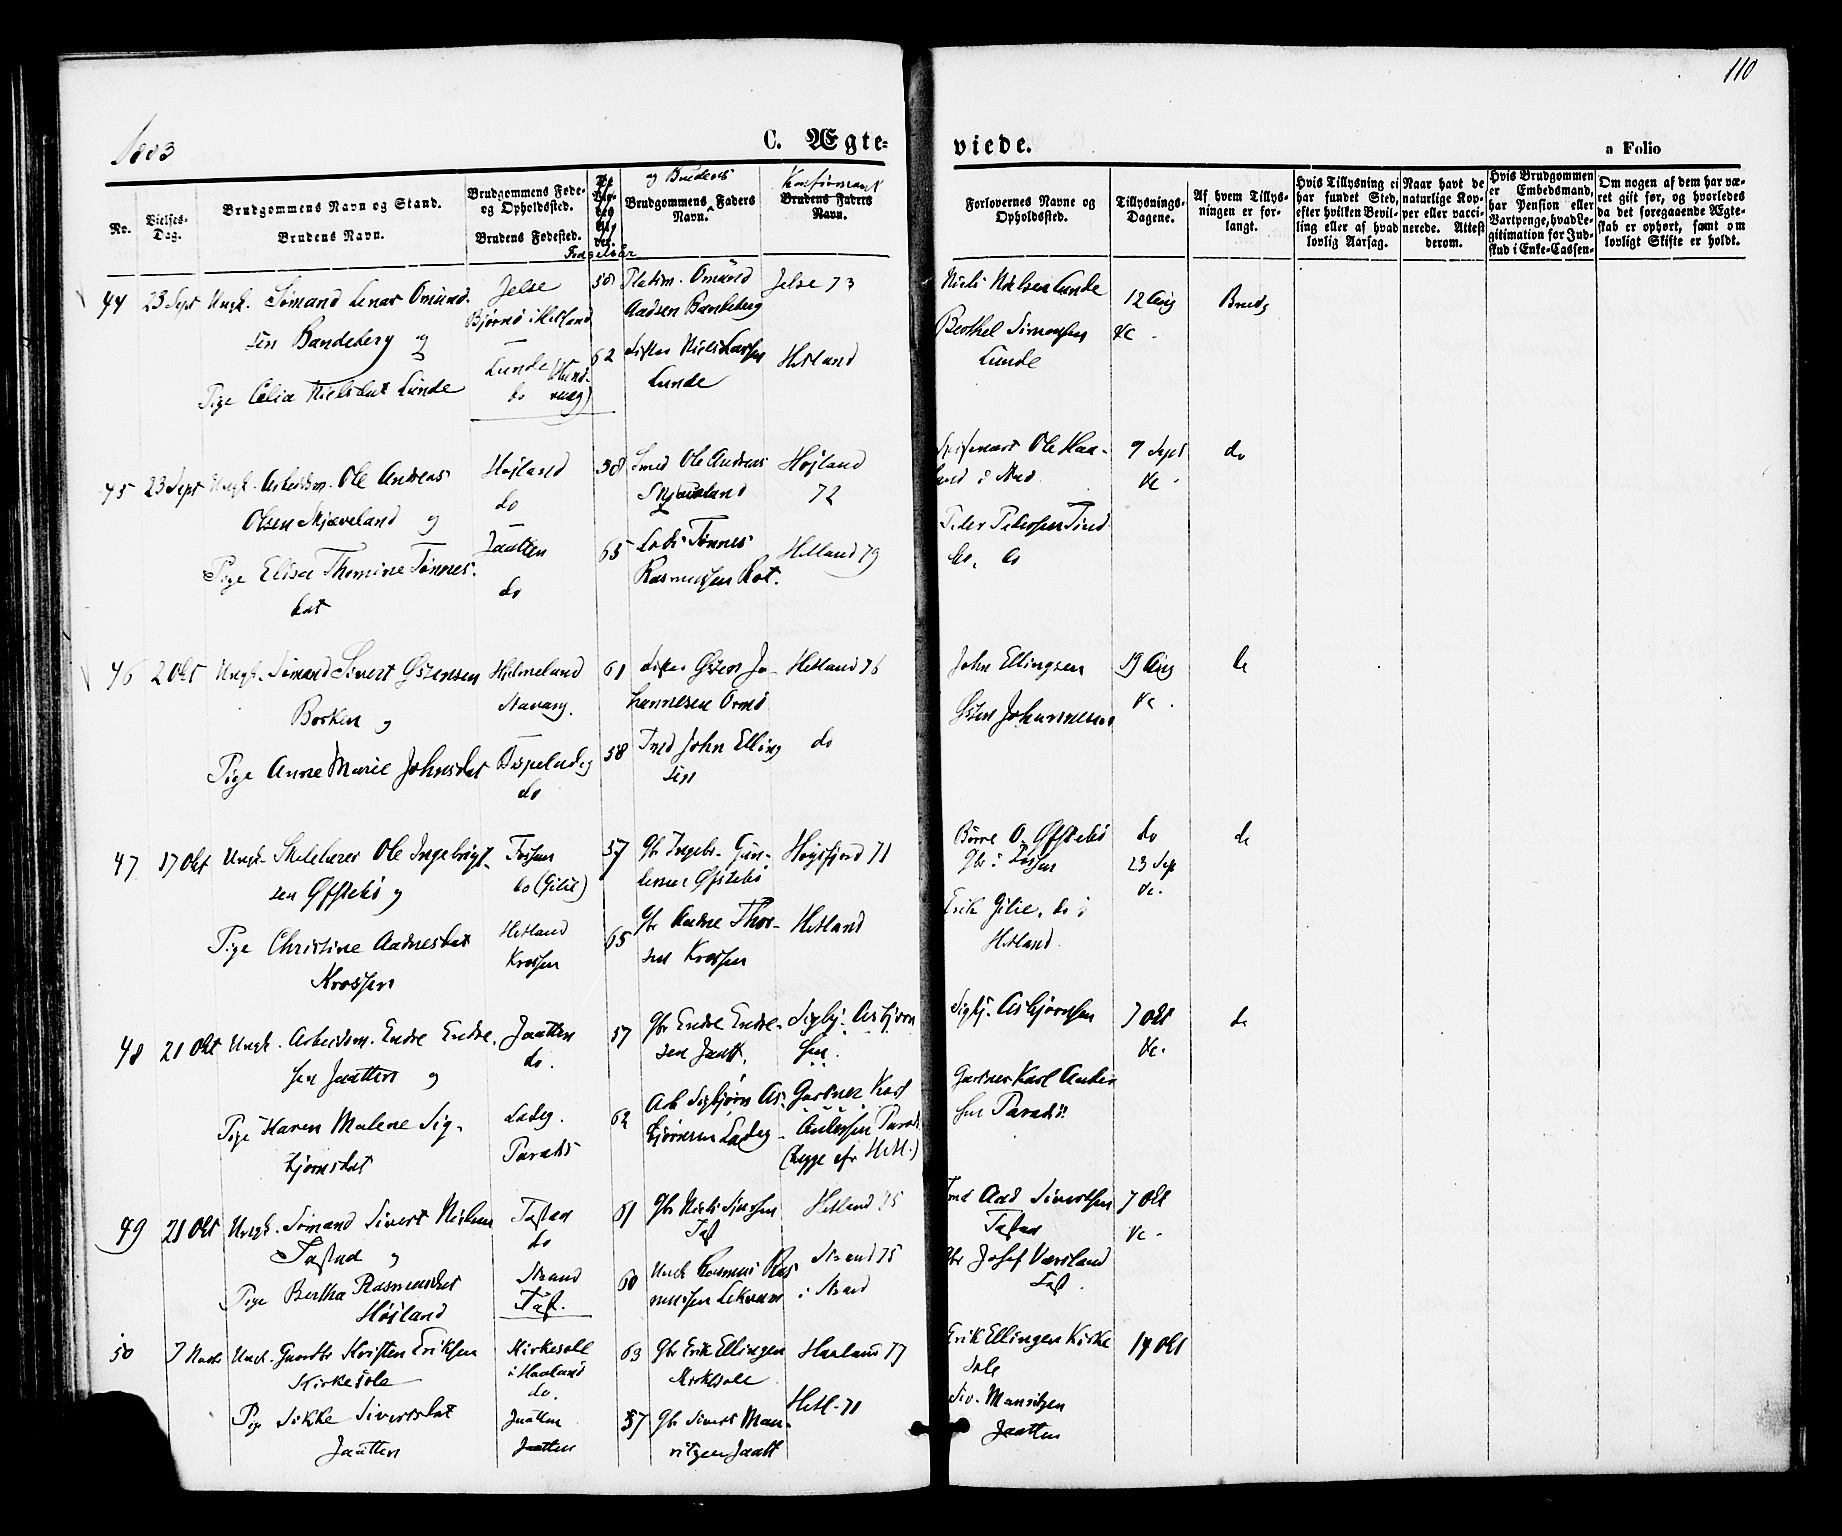 110
1883
C. Ægte-
viede.
a Folio
No.
Vielses-
Dag.
Brudgommens Navn og Stand.
Brudens Navn.
Brudgommens Føde-
og Opholdssted.
Brudens Fødested.
Fødselsaar
og Brudens
Brudgommens Faders
Navn.
Konfirmant
Brudens Faders
Navn.
Forlovernes Navne og
Opholdssted.
Tillysnings-
Dagene.
Af hvem Tillys-
ningen er for-
langt.
Hvis Tillysning ei
har fundet Sted,
efter hvilken Bevil-
ling eller af hvad
lovlig Aarsag.
Naar havt de
naturlige Kop-
per eller vacci-
nerede. Attest
derom.
Hvis Brudgommen
er Embedsmand,
har Pension eller
Vartpenge, hvad Le-
gitimation for Ind-
skud i Enke-Cassen.
Om nogen af dem har væ-
ret gift før, og hvorledes
da det foregaaende Ægte-
skab er ophørt, samt om
lovligt Skifte er holdt.
44 23 Sept Ungk. Sømand Lenar Omund-
sen Bandeberg og
Pige Celia Nielsdat Lunde
Jelse
Bjørnø i Hetland
Lunde (Hund-
do vaag)
58
62
Omund
Aadsen Bandeberg
Niels Larsen
Lunde
Jelse 73
Hetland
Niels Nielsen Lunde
Berthel Simonsen
Lunde
12 Aug
&c.
Bruds
45 23 Sept Ungk. Arbeidsm. Ole Andreas
Olsen Skjæveland og
Pige Elisa Thomine Tønnes-
dat
Høiland
do
Jaatten
do
58
65
Smed Ole Andreas
Skjæveland
Lods Tønnes
Rasmussen Rot.
Høiland
72
Hetland 79
Ole Haa-
land i Stad
Peder Pedersen Tind
do. do
9 Sept
&c.
do
46 2 Okt Ungk. Sømand Sivert Østensen
Borken og
Pige Anne Marie Johnsdat
Hjelmeland
Stavang.
Dispeladeg
do
61
58
Østen Jo-
hannesen Ornø
John Elling
sen
Hetland 76
do
John Ellingsen
Østen Johannesen
19 Aug
&c.
do
47 17 Okt Ungk. Skolelærer Ole Ingebrigt-
sen Øfstebø og
Pige Christine Aadnesdat
Krossen
Fossen
do (Gilie)
Hetland
Krossen
57
65
Gbr Ingebr. Gun-
dersen Øfstebø
Gbr Aadne Thor-
sen Krossen
Høgsfjord 71
Hetland
Børre O. Øfstebø
Gbr i Fossen
Erik Gilie, do i
Hetland
do
23 Sep
&c.
do
48 21 Okt Ungk. Arbeidsm. Endre Endre-
sen Jaatten og
Pige Karen Malene Sig-
bjørnsdat
Jaatten
do.
Ladeg.
Paradis
57
62
Gbr Endre Endre-
sen Jaatt.
Arb Sigbjørn As-
bjørnsen Ladeg
Sigbj. Asbjørn
sen.
Gartner Karl
Andersen Parad.
(begge efr Hetl.)
Sigbj. Asbjørnsen
Gartner Karl Ander
sen Paradis
7 Okt
&c.
do
49 21 Okt Ungk. Sømand Sivert Nielsen
Tastad og
Pige Bertha Rasmusdat
Høiland
Tastad
do
Strand
Tast.
61
60
Gbr Niels
Tast
Ungk Rasmus Ras
mussen Lekvam
Hetland 75
Strand 75
i Strand
Aad Sivertsen
Tastad
Gbr Josef Varsland
Tast.
7 Okt
&c.
50 7 Novbr Ungk. Gaardbr Kristen Eriksen
Kirkesole
Pige Sikke Sivertsdat
Jaatten
Kirkesole
i Haaland
do.
Jaatten
Jaatten
63
57
Gbr Erik Ellingsen
Kirkesole
Gbr Sivert Mau-
ritzen Jaatt
Haaland 77
Hetl. 71
Erik Ellingsen Kirke
sole
Siv. Mauritzen
Jaatten
14 Okt